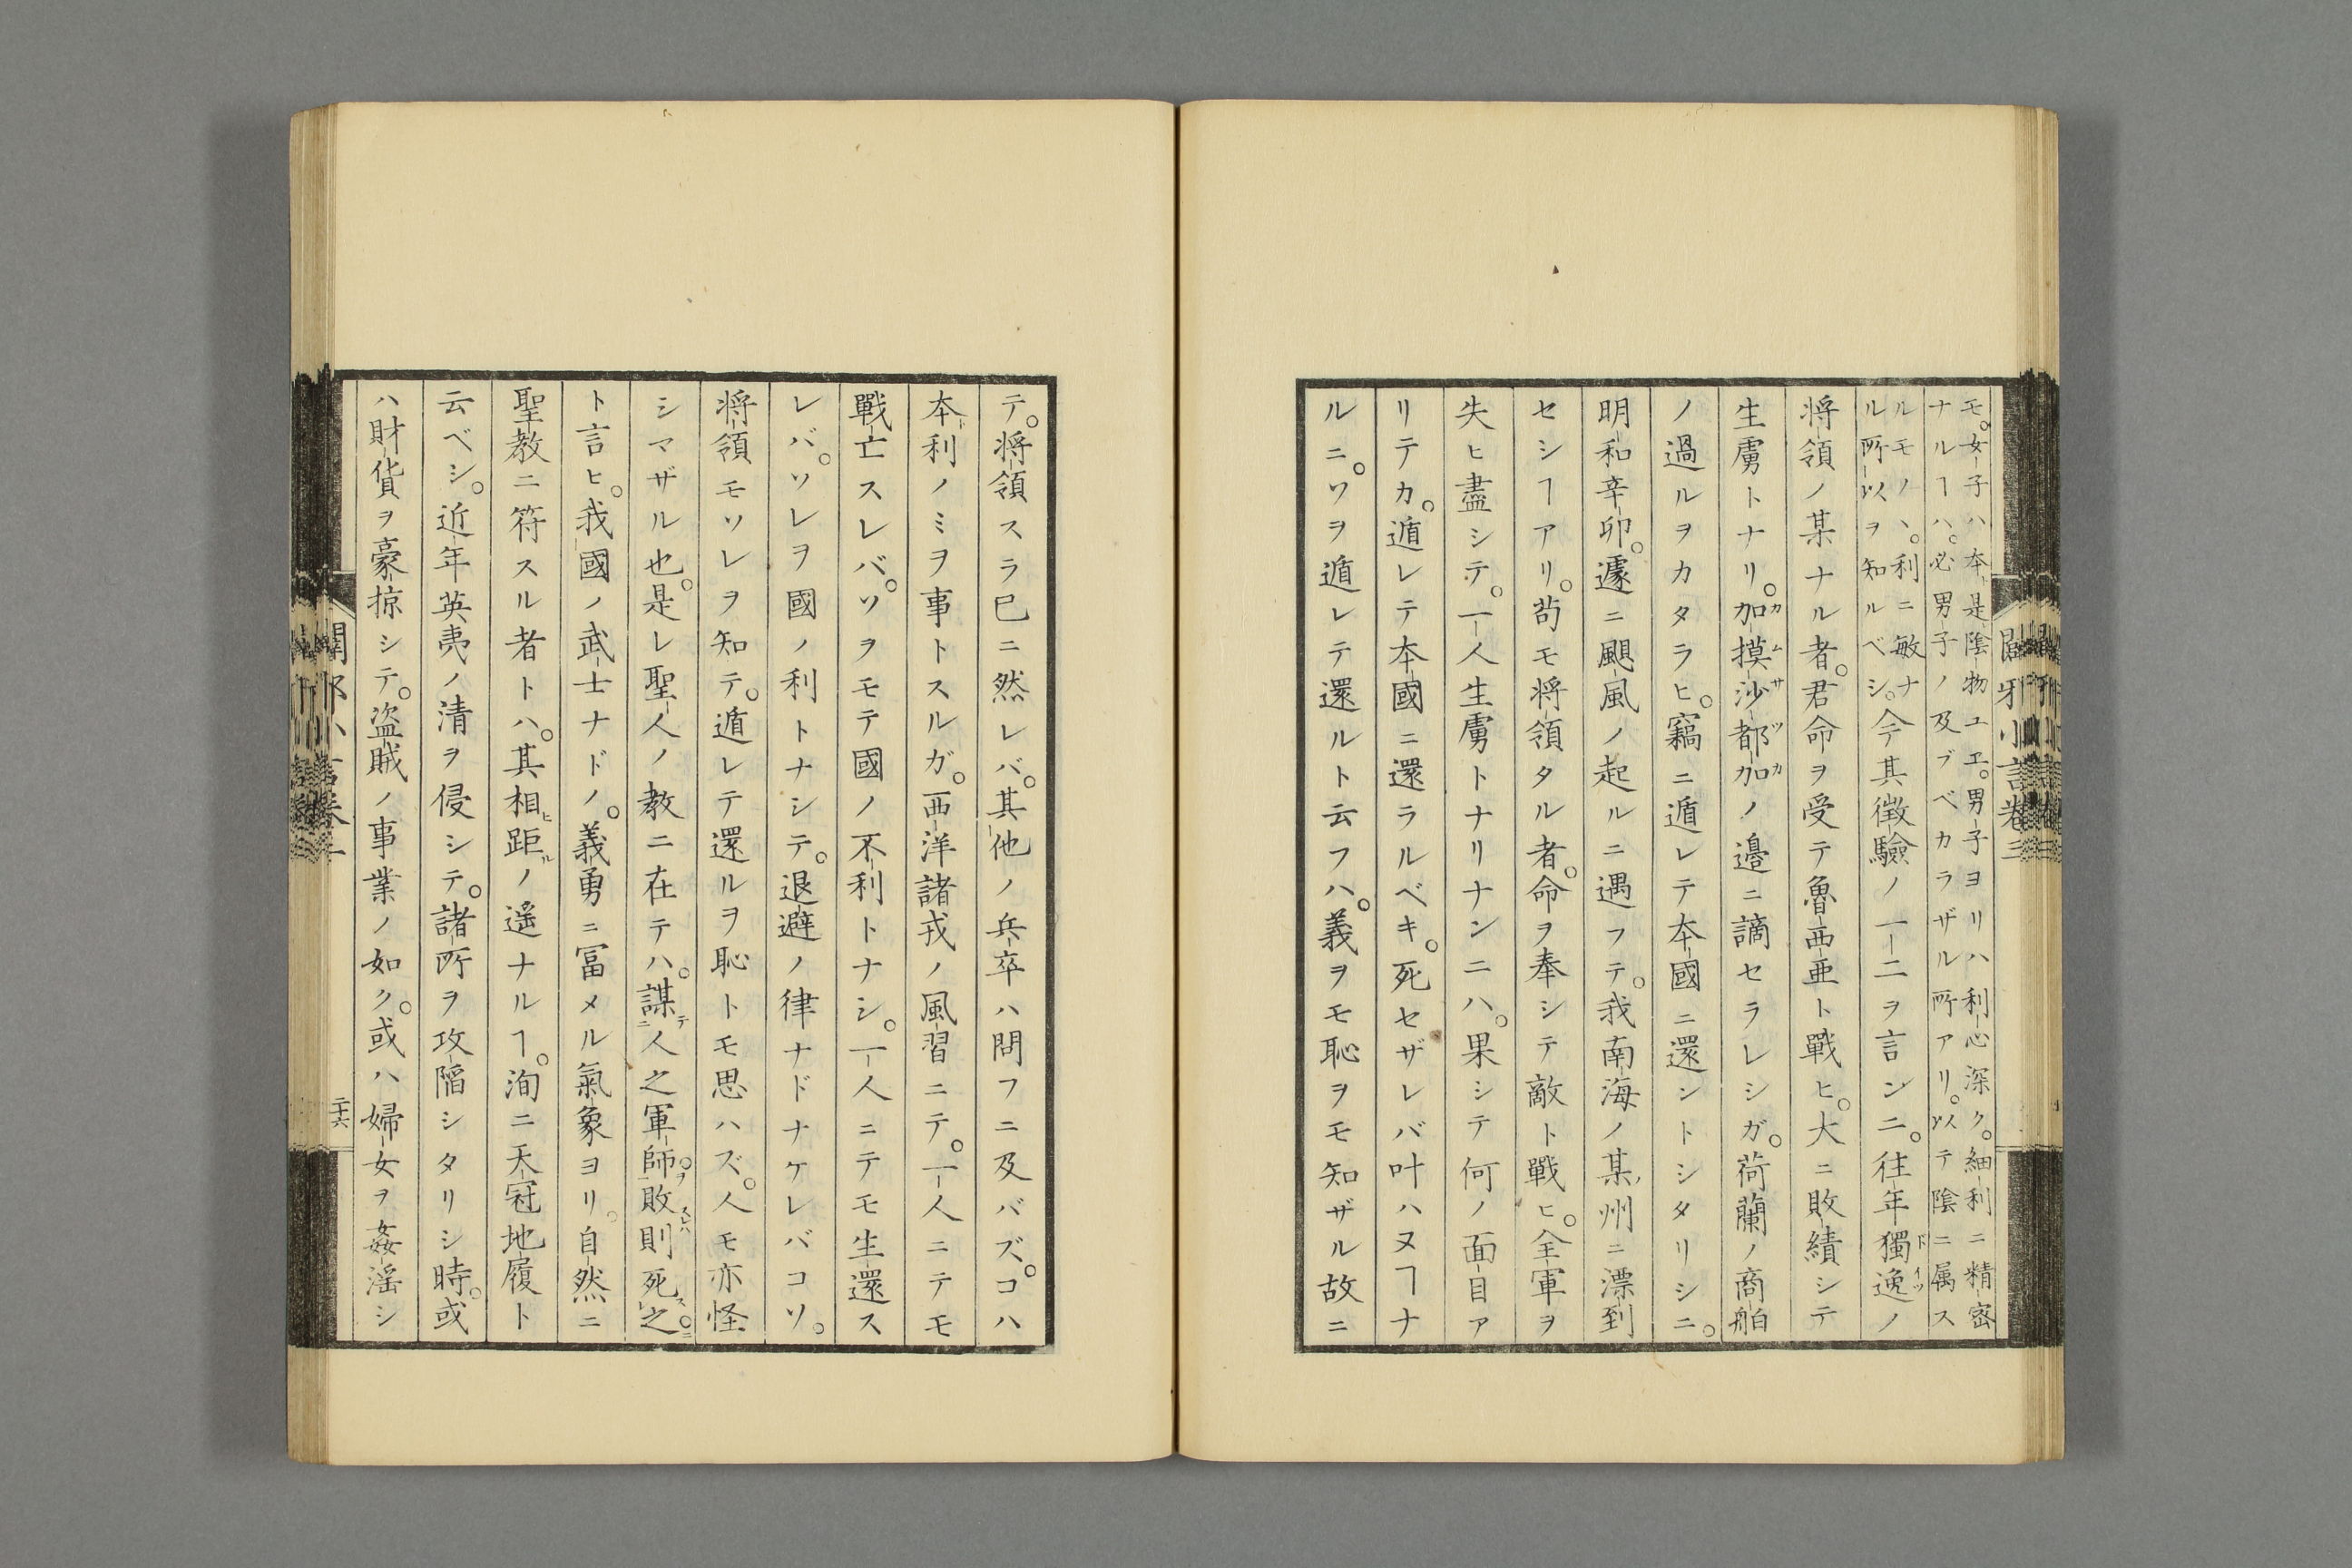 モ。女子ハ本是陰物ユエ。男子ヨリハ利心深ク。細利ニ精密
ナルヿハ。必男子ノ及ブベカラザル所アリ。以テ陰ニ属ス
ルモノヽ。利ニ敏ナ
ル所以ヲ知ルベシ。今其徴驗ノ一二ヲ言ンニ。往年獨逸ノ
将領ノ某ナル者。君命ヲ受テ魯西亜ト戰ヒ。大ニ敗績シテ
生虜トナリ。加摸沙都加ノ邉ニ謫セラレシガ。荷蘭ノ商舶
ノ過ルヲカタラヒ。竊ニ遁レテ本國ニ還ントシタリシニ。
明和辛卯。遽ニ颶風ノ起ルニ遇フテ。我南海ノ某州ニ漂到
セシヿアリ。苟モ将領タル者。命ヲ奉シテ敵ト戰ヒ。全軍ヲ
失ヒ盡シテ。一人生虜トナリナンニハ。果シテ何ノ面目ア
リテカ。遁レテ本國ニ還ラルベキ。死セザレバ叶ハヌヿナ
ルニ。ソヲ遁レテ還ルト云フハ。義ヲモ恥ヲモ知ザル故ニ
テ。将領スラ已ニ然レバ。其他ノ兵卒ハ問フニ及バズ。コハ
本利ノミヲ事トスルガ。西洋諸戎ノ風習ニテ。一人ニテモ
戰亡スレバ。ソヲモテ國ノ不利トナシ。一人ニテモ生還ス
レバ。ソレヲ國ノ利トナシテ。退避ノ律ナドナケレバコソ。
将領モソレヲ知テ。遁レテ還ルヲ恥トモ思ハズ。人モ亦怪
シマザル也。是レ聖人ノ教ニ在テハ。謀人之軍師。敗則死之。
ト言ヒ。我國ノ武士ナドノ。義勇ニ冨メル氣象ヨリ。自然ニ
聖教ニ符スル者トハ。其相距ノ遥ナルヿ。洵ニ天冠地履ト
云ベシ。近年英夷ノ清ヲ侵シテ。諸所ヲ攻陷シタリシ時。或
ハ財貨ヲ豪掠シテ。盗賊ノ事業ノ如ク。或ハ婦女ヲ姦淫シ
二十六